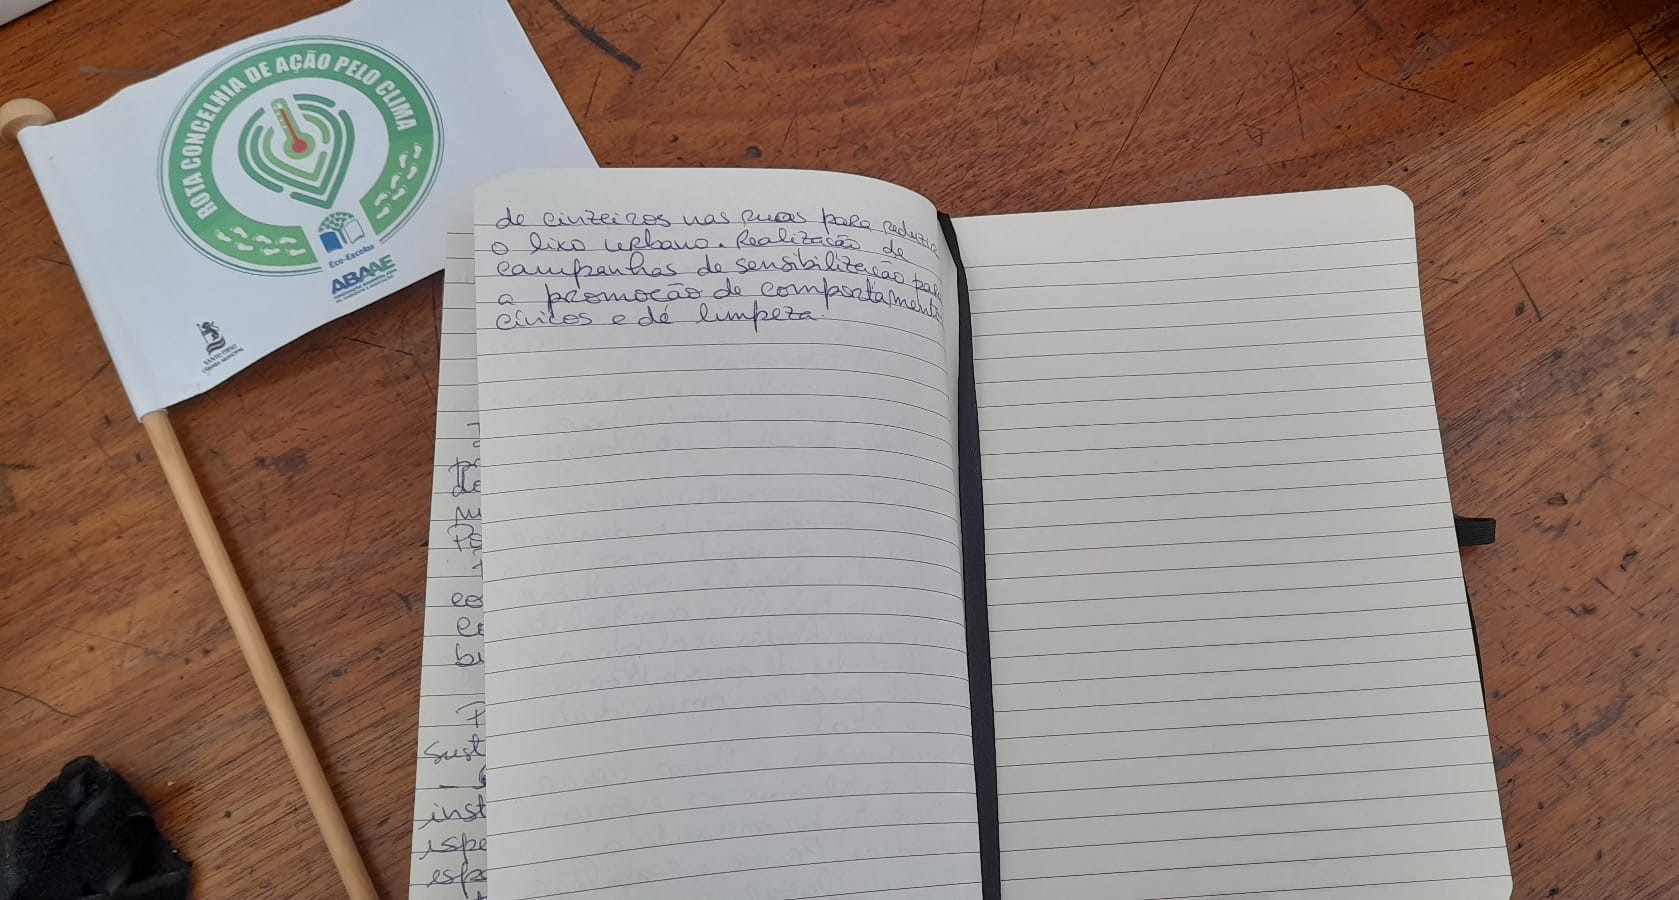 ROTA CONCELHIA DE AÇÃO PELO CLIMA
Eco-Escolas
ABAAE
SANTO TIRSO
CÂMARA MUNICIPAL
de cinzeiros nas ruas para reduzir
o lixo urbano. Realização de
campanhas de sensibilização para
a promoção de comportamentos
cívicos e de limpeza.
de
co
bi
Sust
inst
espe
espa